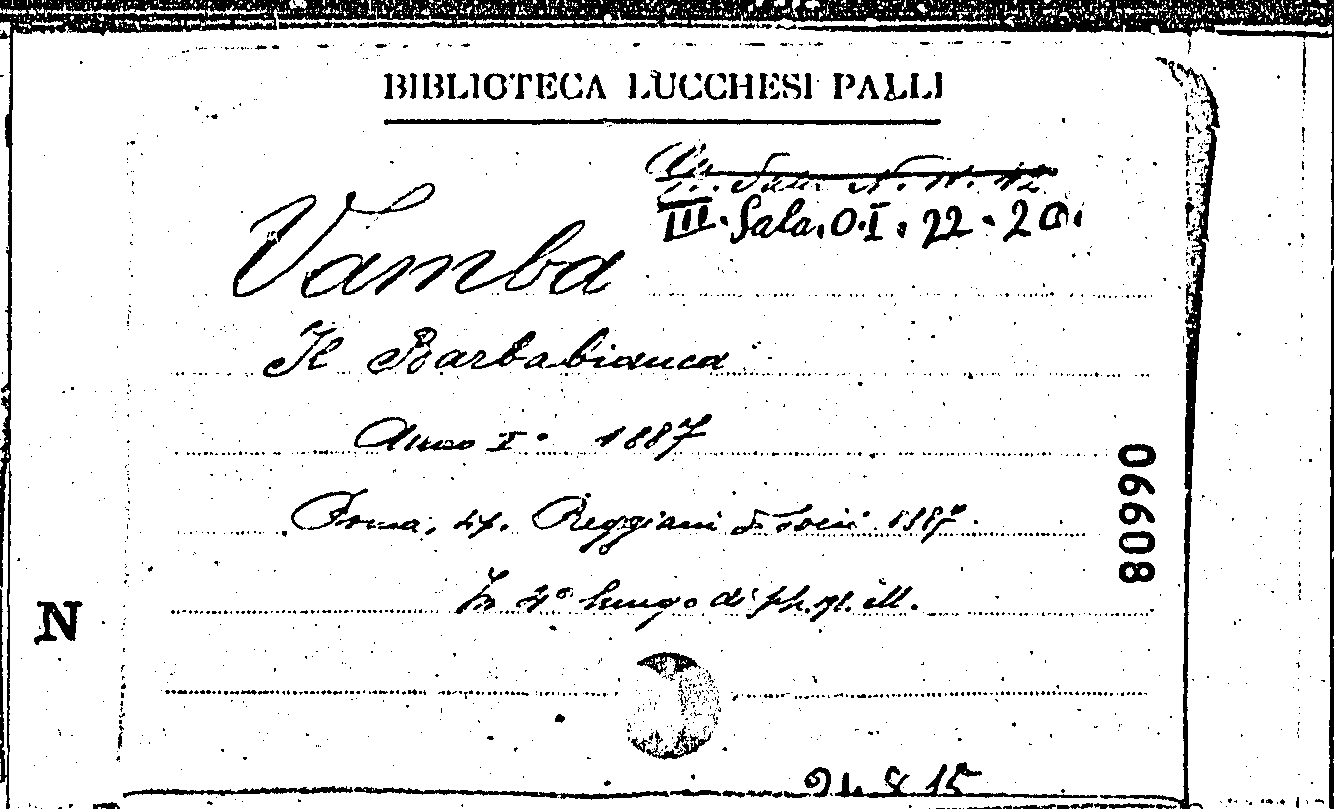 BIBLIOTECA LUCCHESI PALLI
III. Sala. O.I. 22. 20.
Vamba
Il Barbabianca
Anno I° 1887
Roma, tip. Reggiani & Socii 1887.
In 4° lungo di pp. ill.
06608
N